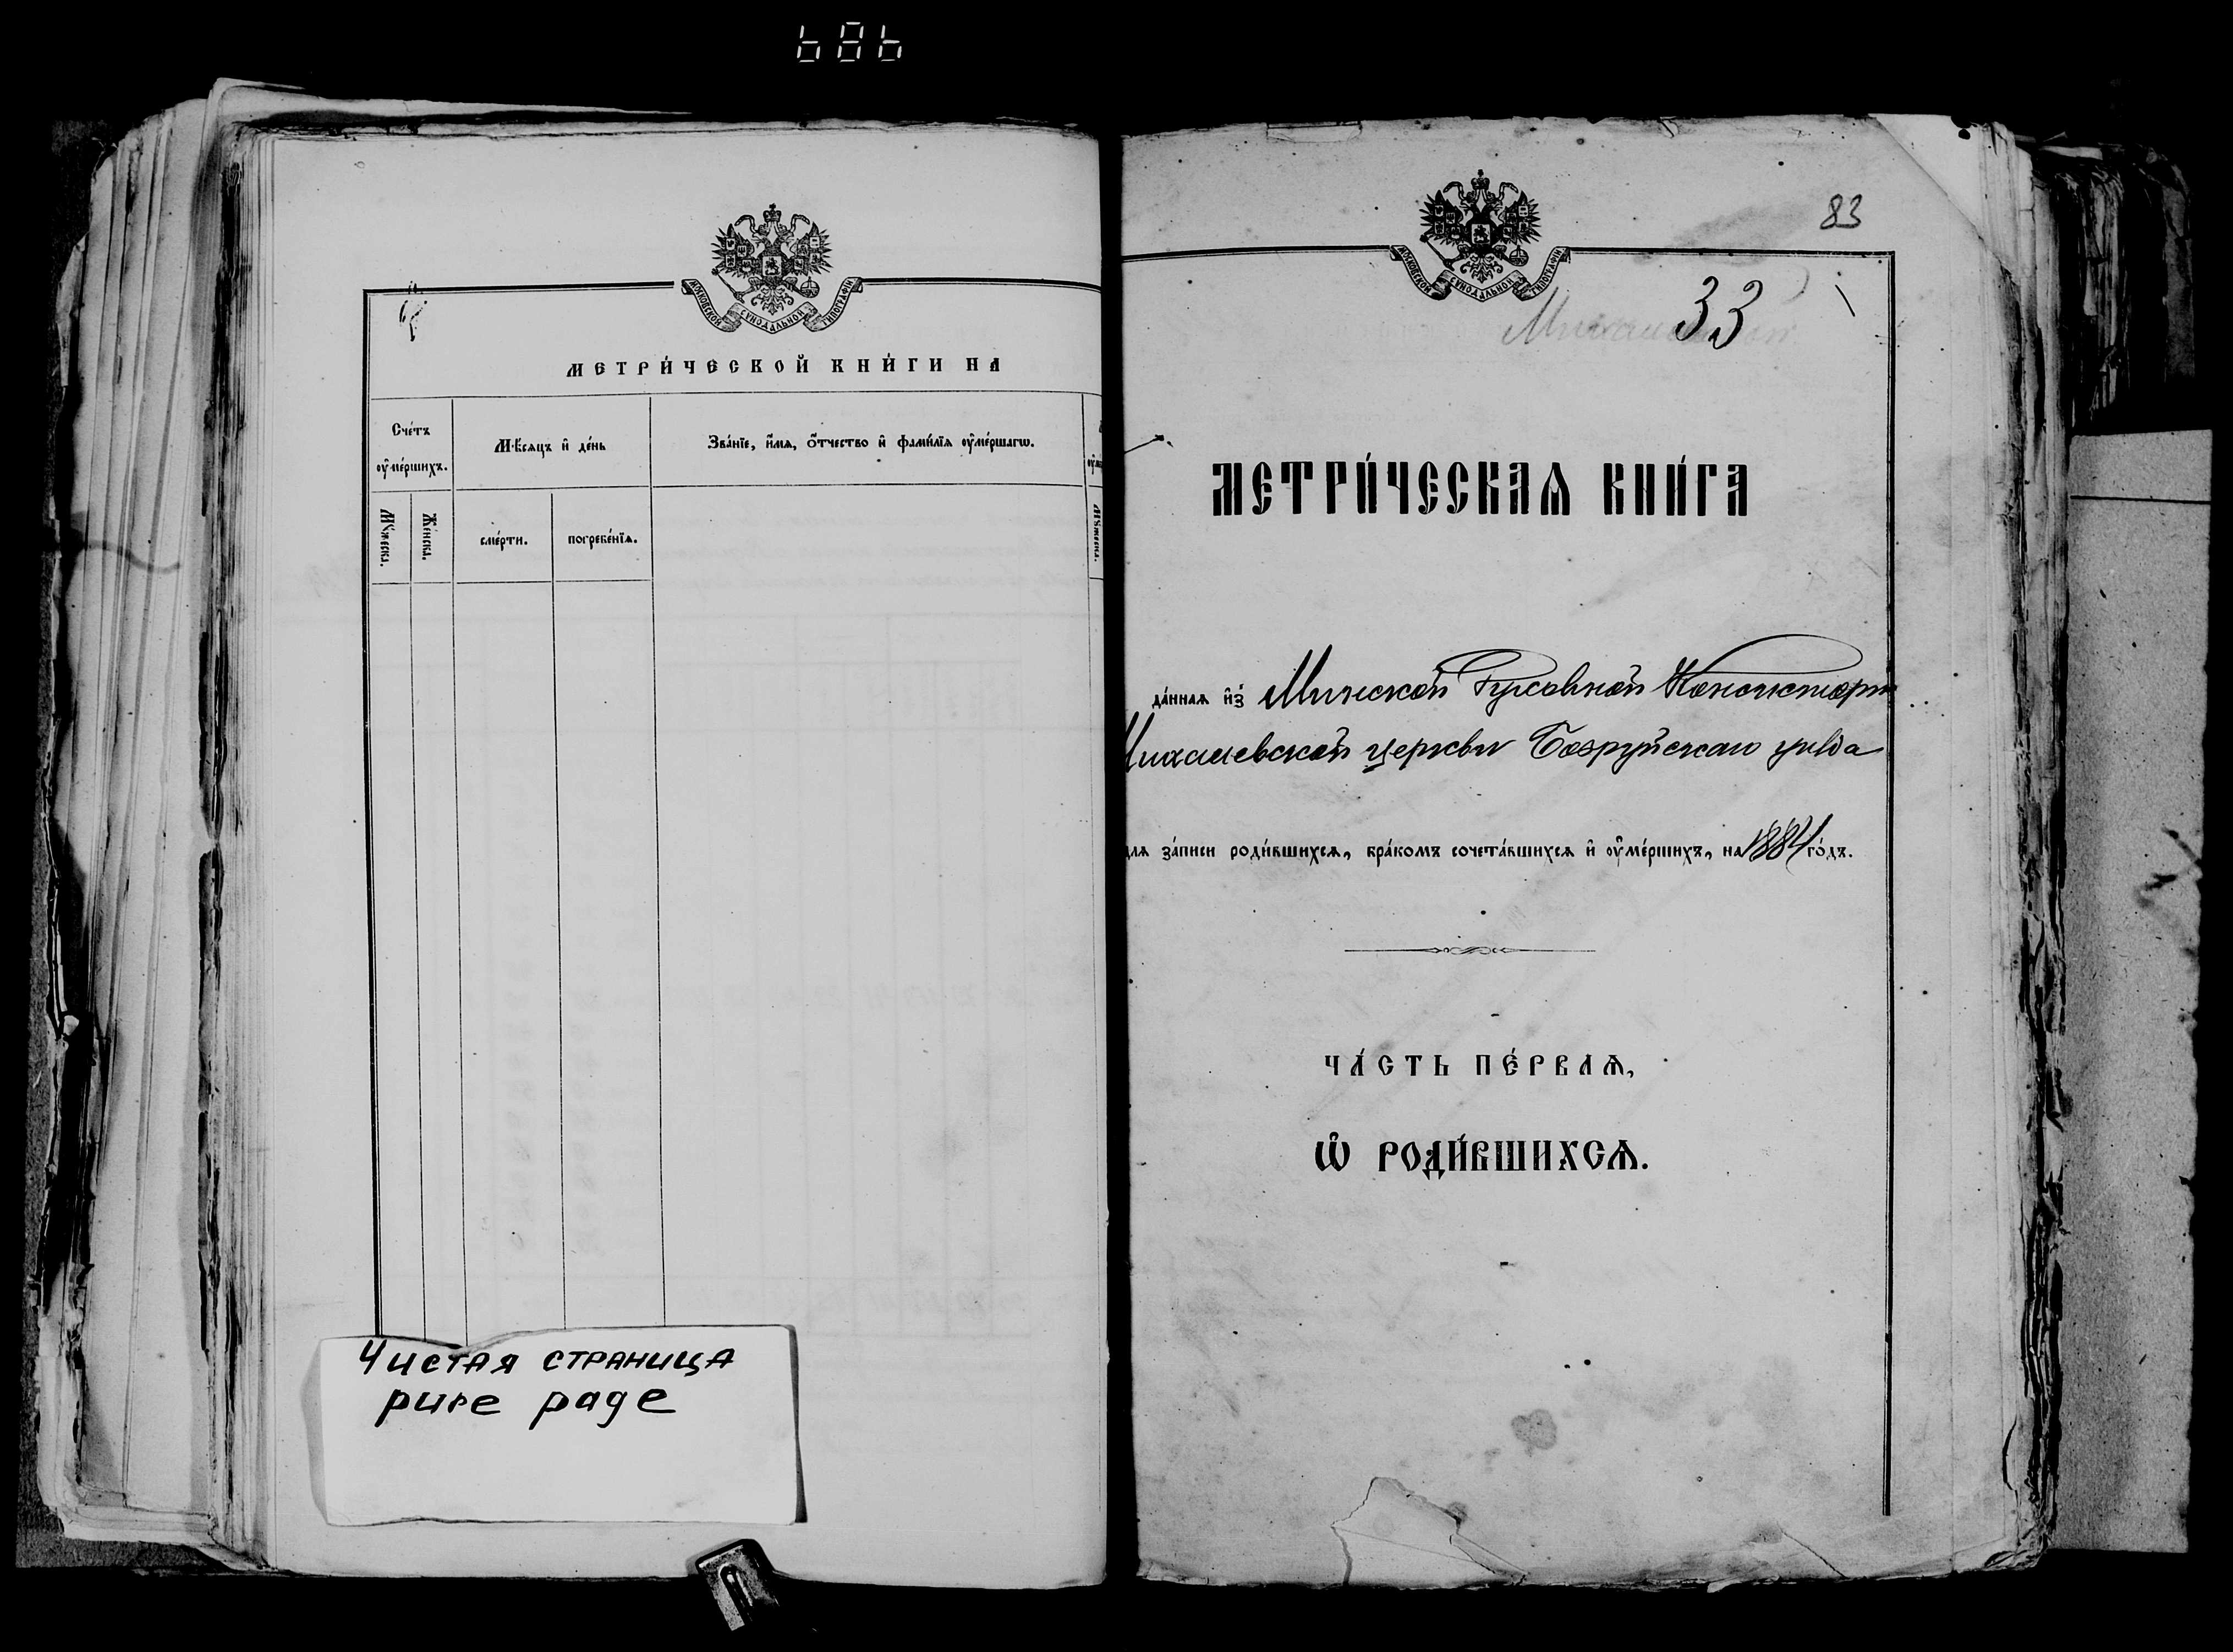 МОСКОВСКОЙ СѴНОДАЛЬНОЙ ТИПОГРАФІИ
МЕТРИ́ЧЕСКОЙ КНИ́ГИ НА
Сче́тъ
ᲂу҆ме́ршихъ.
Мѣ́сяцъ и҆ де́нь
Зва́нїе, и҆́мѧ, ѻ҆́тчество и҆ фами́лїѧ ᲂу҆ме́ршагѡ.
Мꙋ́жескъ.
Же́нскъ.
сме́рти.
погребе́нїѧ.
Чистая страница
pure page
83
МОСКОВСКОЙ СѴНОДАЛЬНОЙ ТИПОГРАФІИ
33
МЕТРИ́ЧЕСКАѦ КНИ́ГА
да́ннаѧ и҆з̾ Минской Духовной Консисторіи
Михалевской церкви Бобруйскаго уѣзда
для за́писи роди́вшихсѧ, бра́комъ сочета́вшихсѧ и҆ ᲂу҆ме́ршихъ, на 1884 го́дъ.
ЧА́СТЬ ПЕ́РВАѦ,
Ѡ҆ РОДИ́ВШИХСѦ.